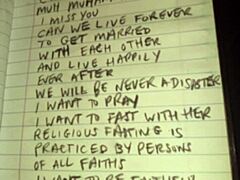 MUH MUHAM
I MISS YOU
CAN WE LIVE FOREVER
TO GET MARRIED
WITH EACH OTHER
AND LIVE HAPPILY
EVER AFTER
WE WILL BE NEVER A DISASTER
I WANT TO PRAY
I WANT TO FAST WITH HER
RELIGIOUS FASTING IS
PRACTICED BY PERSONS
OF ALL FAITHS
I WANT TO BE FAITHFUL